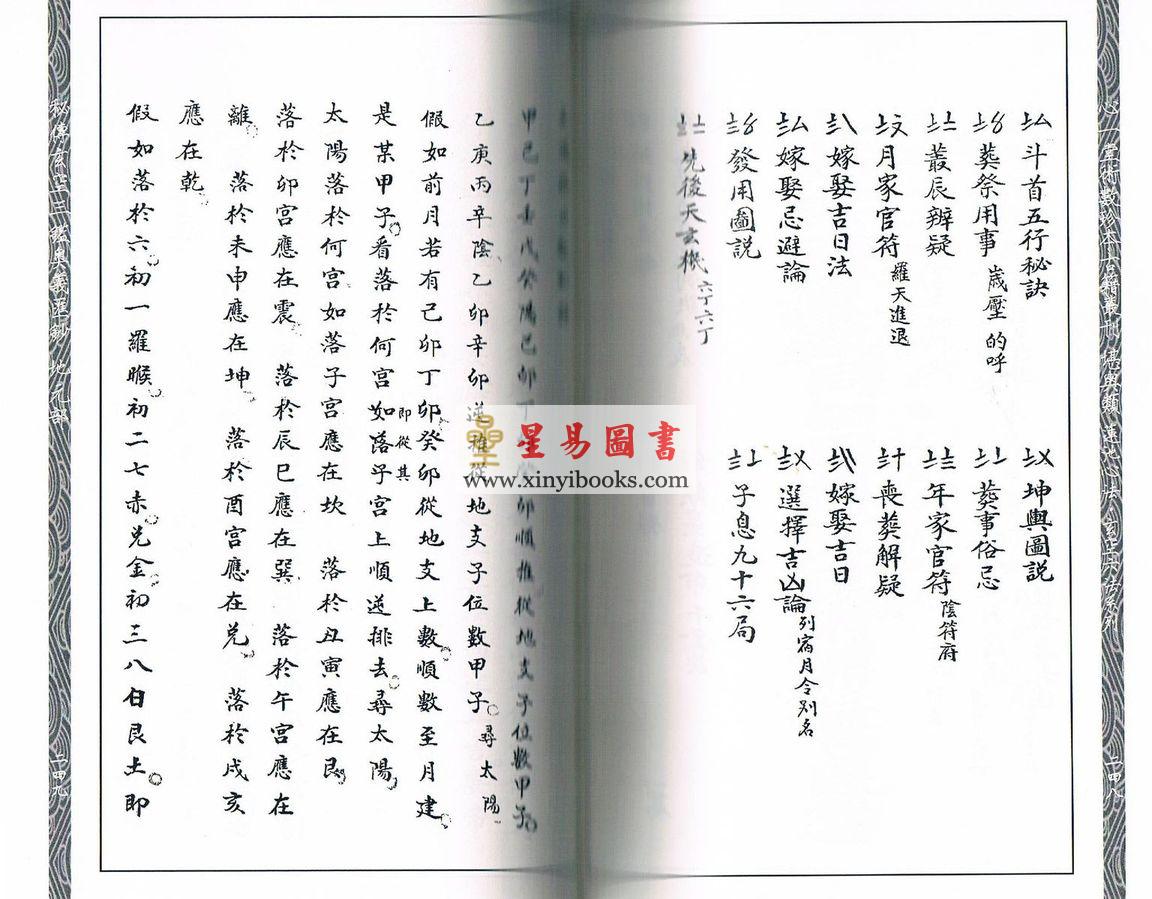 斗首五行秘訣
坤輿圖説
葬祭用事 歲壓的呼
葬事俗忌
叢辰辨疑
年家官符 陰符府
月家官符 羅天進退
喪葬解疑
嫁娶吉日法
嫁娶吉日
嫁娶忌避論
選擇吉凶論 列宿月令别名
發用圖説
子息九十六局
先後天玄機 六丁六丁
二四八
甲己丁壬戊癸陽己卯丁卯癸卯順推從地支子位數甲子
乙庚丙辛陰乙卯辛卯逆推從地支子位數甲子 尋太陽
假如前月若有己卯丁卯癸卯從地支上數順數至月建
是某甲子看落於何宮如落子宮 即從其 上順逆排去尋太陽
太陽落於何宮如落子宮應在坎 落於丑寅應在艮
落於卯宮應在震 落於辰巳應在巽 落於午宮應在
離 落於未申應在坤 落於酉宮應在兑 落於戌亥
應在乾
假如落於六初一羅睺初二七赤兑金初三八白艮土即
二四九
星易圖書
www.xinyibooks.com